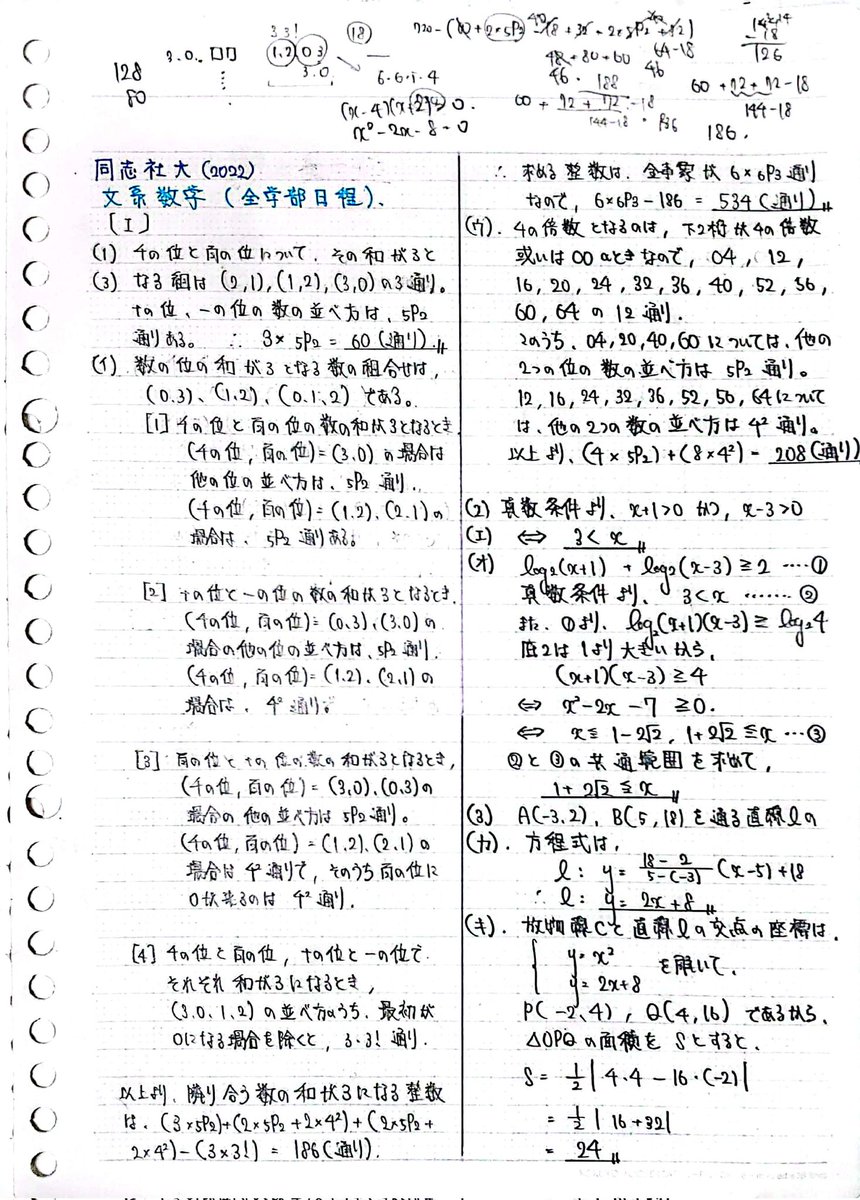 128
80
3.0.□□
3 3!
1,2 0 3
3.0.
18
6・6・5・4
(x-4)(x+2)=0.
x²-2x-8=0
48+80+60
64-18
46
188
46
60+72+72-18
144-18
126
60+72+72-18
144-18
186.
同志社大(2022)
文系数学(全学部日程)、
[I]
(1) 千の位と百の位について、その和が3と
(3) なる組は(2,1),(1,2),(3,0)の3通り。
十の位、一の位の数の並べ方は、5P2
通りある。 ∴ 3×5P2=60(通り).
(イ) 数の位の和が3となる数の組合せは、
(0.3)、(1,2)、(0.1.2)である。
[1] 千の位と百の位の数の和が3となるとき
(千の位,百の位)=(3,0)の場合は
他の位の並べ方は、5P2通り.
(千の位,百の位)=(1.2)、(2.1)の
場合は、5P2通りある。
[2] 十の位と一の位の数の和が3となるとき.
(千の位,百の位)=(0.3)、(3.0)の
場合の他の位の並べ方は、5P2通り.
(千の位,百の位)=(1.2)、(2.1)の
場合は、4²通り。
[3] 百の位と十の位の数の和が3となるとき,
(千の位,百の位)=(3,0)、(0.3)の
場合の他の並べ方は5P2通り。
(千の位,百の位)=(1.2)、(2.1)の
場合は4²通りで,そのうち百の位に
0が来るのは4²通り.
[4] 千の位と百の位,十の位と一の位で
それぞれ和が3になるとき,
(3.0,1,2)の並べ方のうち、最初が
0になる場合を除くと,3・3!通り.
以上より、隣り合う数の和が3になる整数
は、(3×5P2)+(2×5P2+2×4²)+(2×5P2+
2×4²)-(3×3!)=186(通り).
∴ 求める整数は、全事象が6×6P3通り
なので,6×6P3-186=534(通り)
(ウ). 4の倍数となるのは、下2桁が4の倍数
或いは00のときなので,04,12,
16,20,24,32,36,40,52,56,
60,64の12通り.
このうち、04,20,40,60については、他の
2つの位の数の並べ方は5P2通り。
12,16,24,32,36,52,56,64について
は、他の2つの数の並べ方は4²通り。
以上より、(4×5P2)+(8×4²)=208(通り)
(2) 真数条件より、x+1>0かつ,x-3>0
(エ) ⇔ 3<x
(オ) log₂(x+1)+log₂(x-3)≧2 ……①
真数条件より、 3<x ……②
また、①より、log₂(x+1)(x-3)≧log₂4
底2は1より大きいから、
(x+1)(x-3)≧4
⇔ x²-2x-7≧0.
⇔ x≦1-2√2, 1+2√2≦x …③
②と③の共通範囲を求めて,
1+2√2≦x
(3) A(-3,2), B(5,18)を通る直線ℓの
(カ). 方程式は,
ℓ: y=18-2/5-(-3)(x-5)+18
∴ ℓ: y=2x+8
(キ). 放物線Cと直線ℓの交点の座標は、
{ y=x²
y=2x+8 を解いて、
P(-2,4),Q(4,16)であるから、
△OPQの面積をSとすると、
S=1/2|4・4-16・(-2)|
=1/2|16+32|
=24